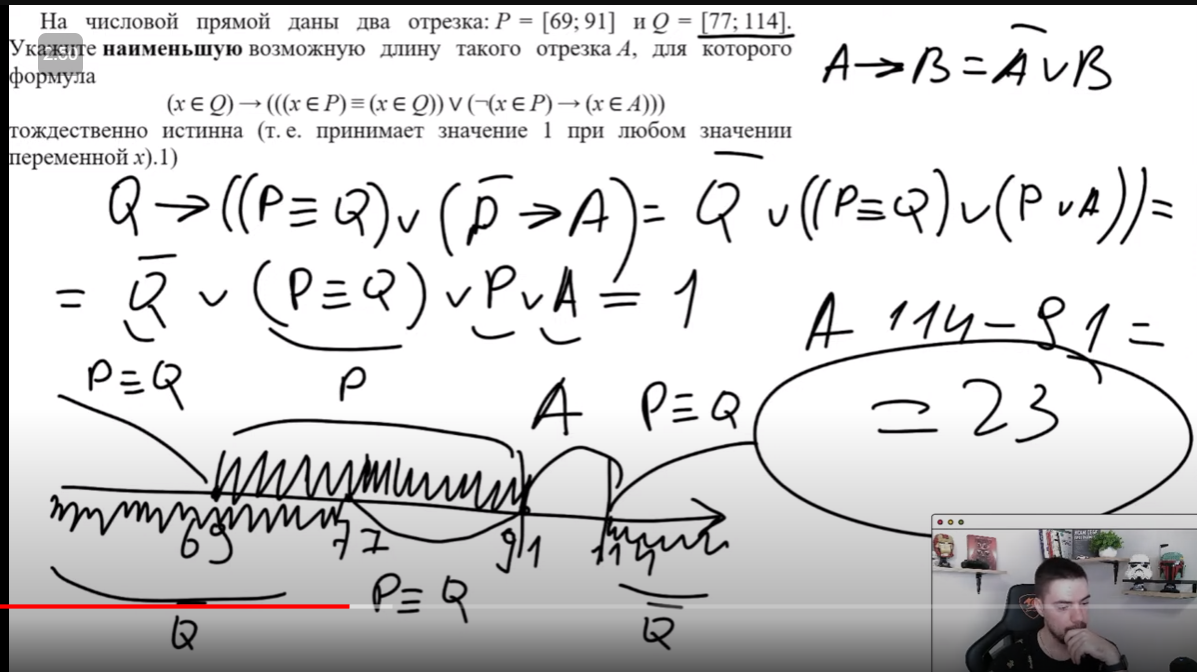 На числовой прямой даны два отрезка: P = [69; 91] и Q = [77; 114].
Укажите наименьшую возможную длину такого отрезка A, для которого
формула
(x ∈ Q) → (((x ∈ P) ≡ (x ∈ Q)) ∨ (¬(x ∈ P) → (x ∈ A)))
тождественно истинна (т. е. принимает значение 1 при любом значении
переменной x).1)
A → B = A̅ ∨ B
Q → ((P ≡ Q) ∨ (P̅ → A) = Q̅ ∨ ((P ≡ Q) ∨ (P ∨ A)) =
= Q̅ ∨ (P ≡ Q) ∨ P ∨ A = 1
A 114 – 91 =
= 23
P ≡ Q P A P ≡ Q
69 77 91 114
Q̅ P ≡ Q Q̅